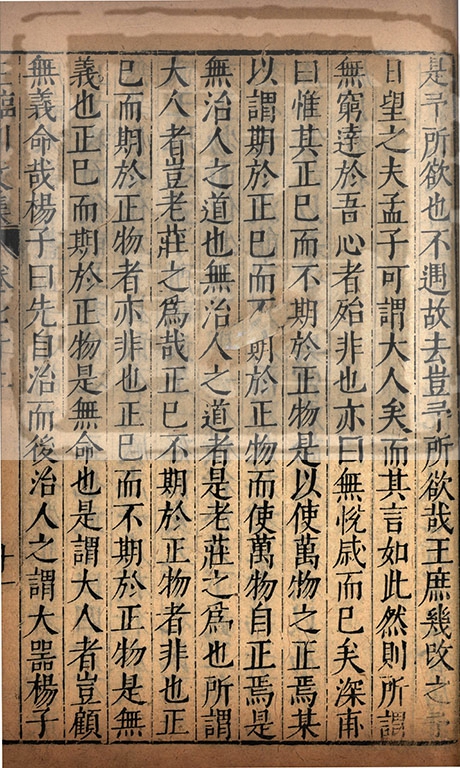 是予所欲也不遇故去豈予所欲哉王庶幾改之予
日望之夫孟子可謂大人矣而其言如此然則所謂
無窮達於吾心者殆非也亦曰無悅戚而已矣深甫
曰惟其正已而不期於正物是以使萬物之正焉某
以謂期於正已而不期於正物而使萬物自正焉是
無治人之道也無治人之道者是老莊之爲也所謂
大人者豈老莊之爲哉正已不期於正物者非也正
已而期於正物者亦非也正已而不期於正物是無
義也正已而期於正物是無命也是謂大人者豈顧
無義命哉楊子曰先自治而後治人之謂大器楊子
王臨川文集 卷七十二 十一